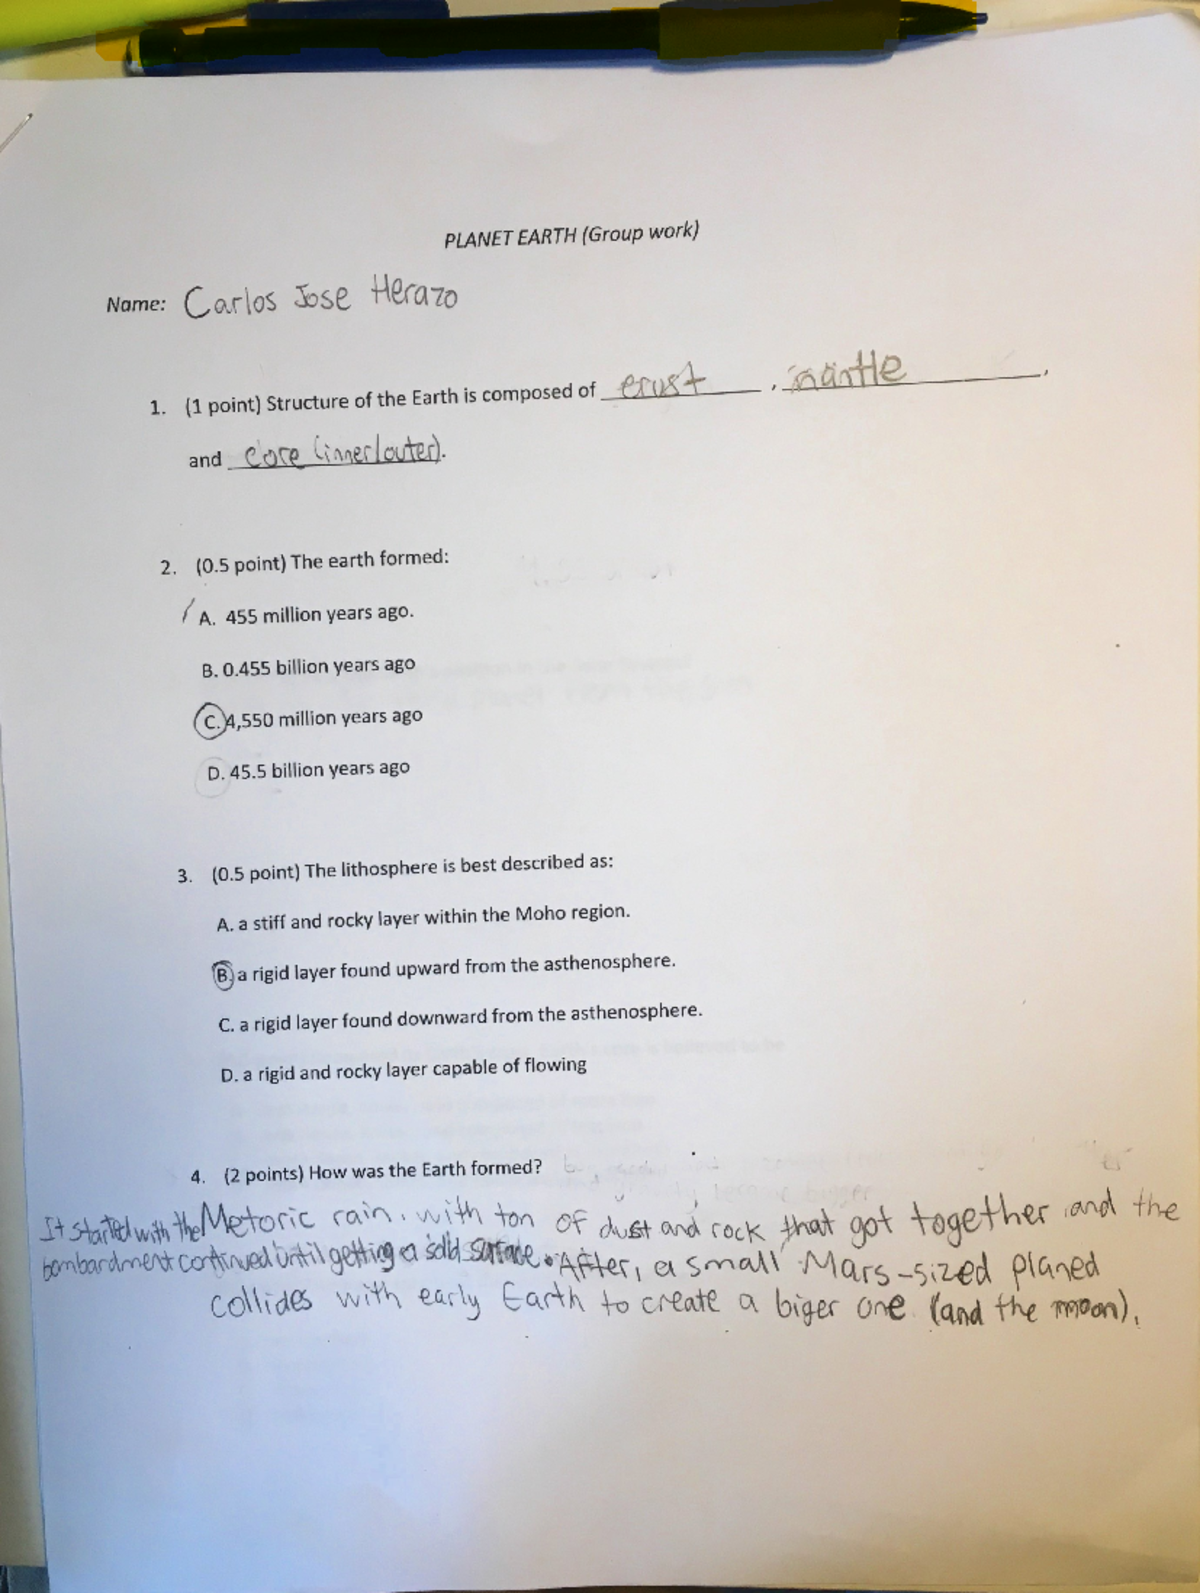 PLANET EARTH (Group work)
Name: Carlos Jose Herazo
1. (1 point) Structure of the Earth is composed of crust, mantle,
and core (inner/outer).
2. (0.5 point) The earth formed:
A. 455 million years ago.
B. 0.455 billion years ago
C. 4,550 million years ago
D. 45.5 billion years ago
3. (0.5 point) The lithosphere is best described as:
A. a stiff and rocky layer within the Moho region.
B. a rigid layer found upward from the asthenosphere.
C. a rigid layer found downward from the asthenosphere.
D. a rigid and rocky layer capable of flowing
4. (2 points) How was the Earth formed?
It started with the Metoric rain. with ton of dust and rock that got together and the
bombardment continued until getting a solid surface. After, a small Mars-sized planed
collides with early Earth to create a biger one (and the moon).